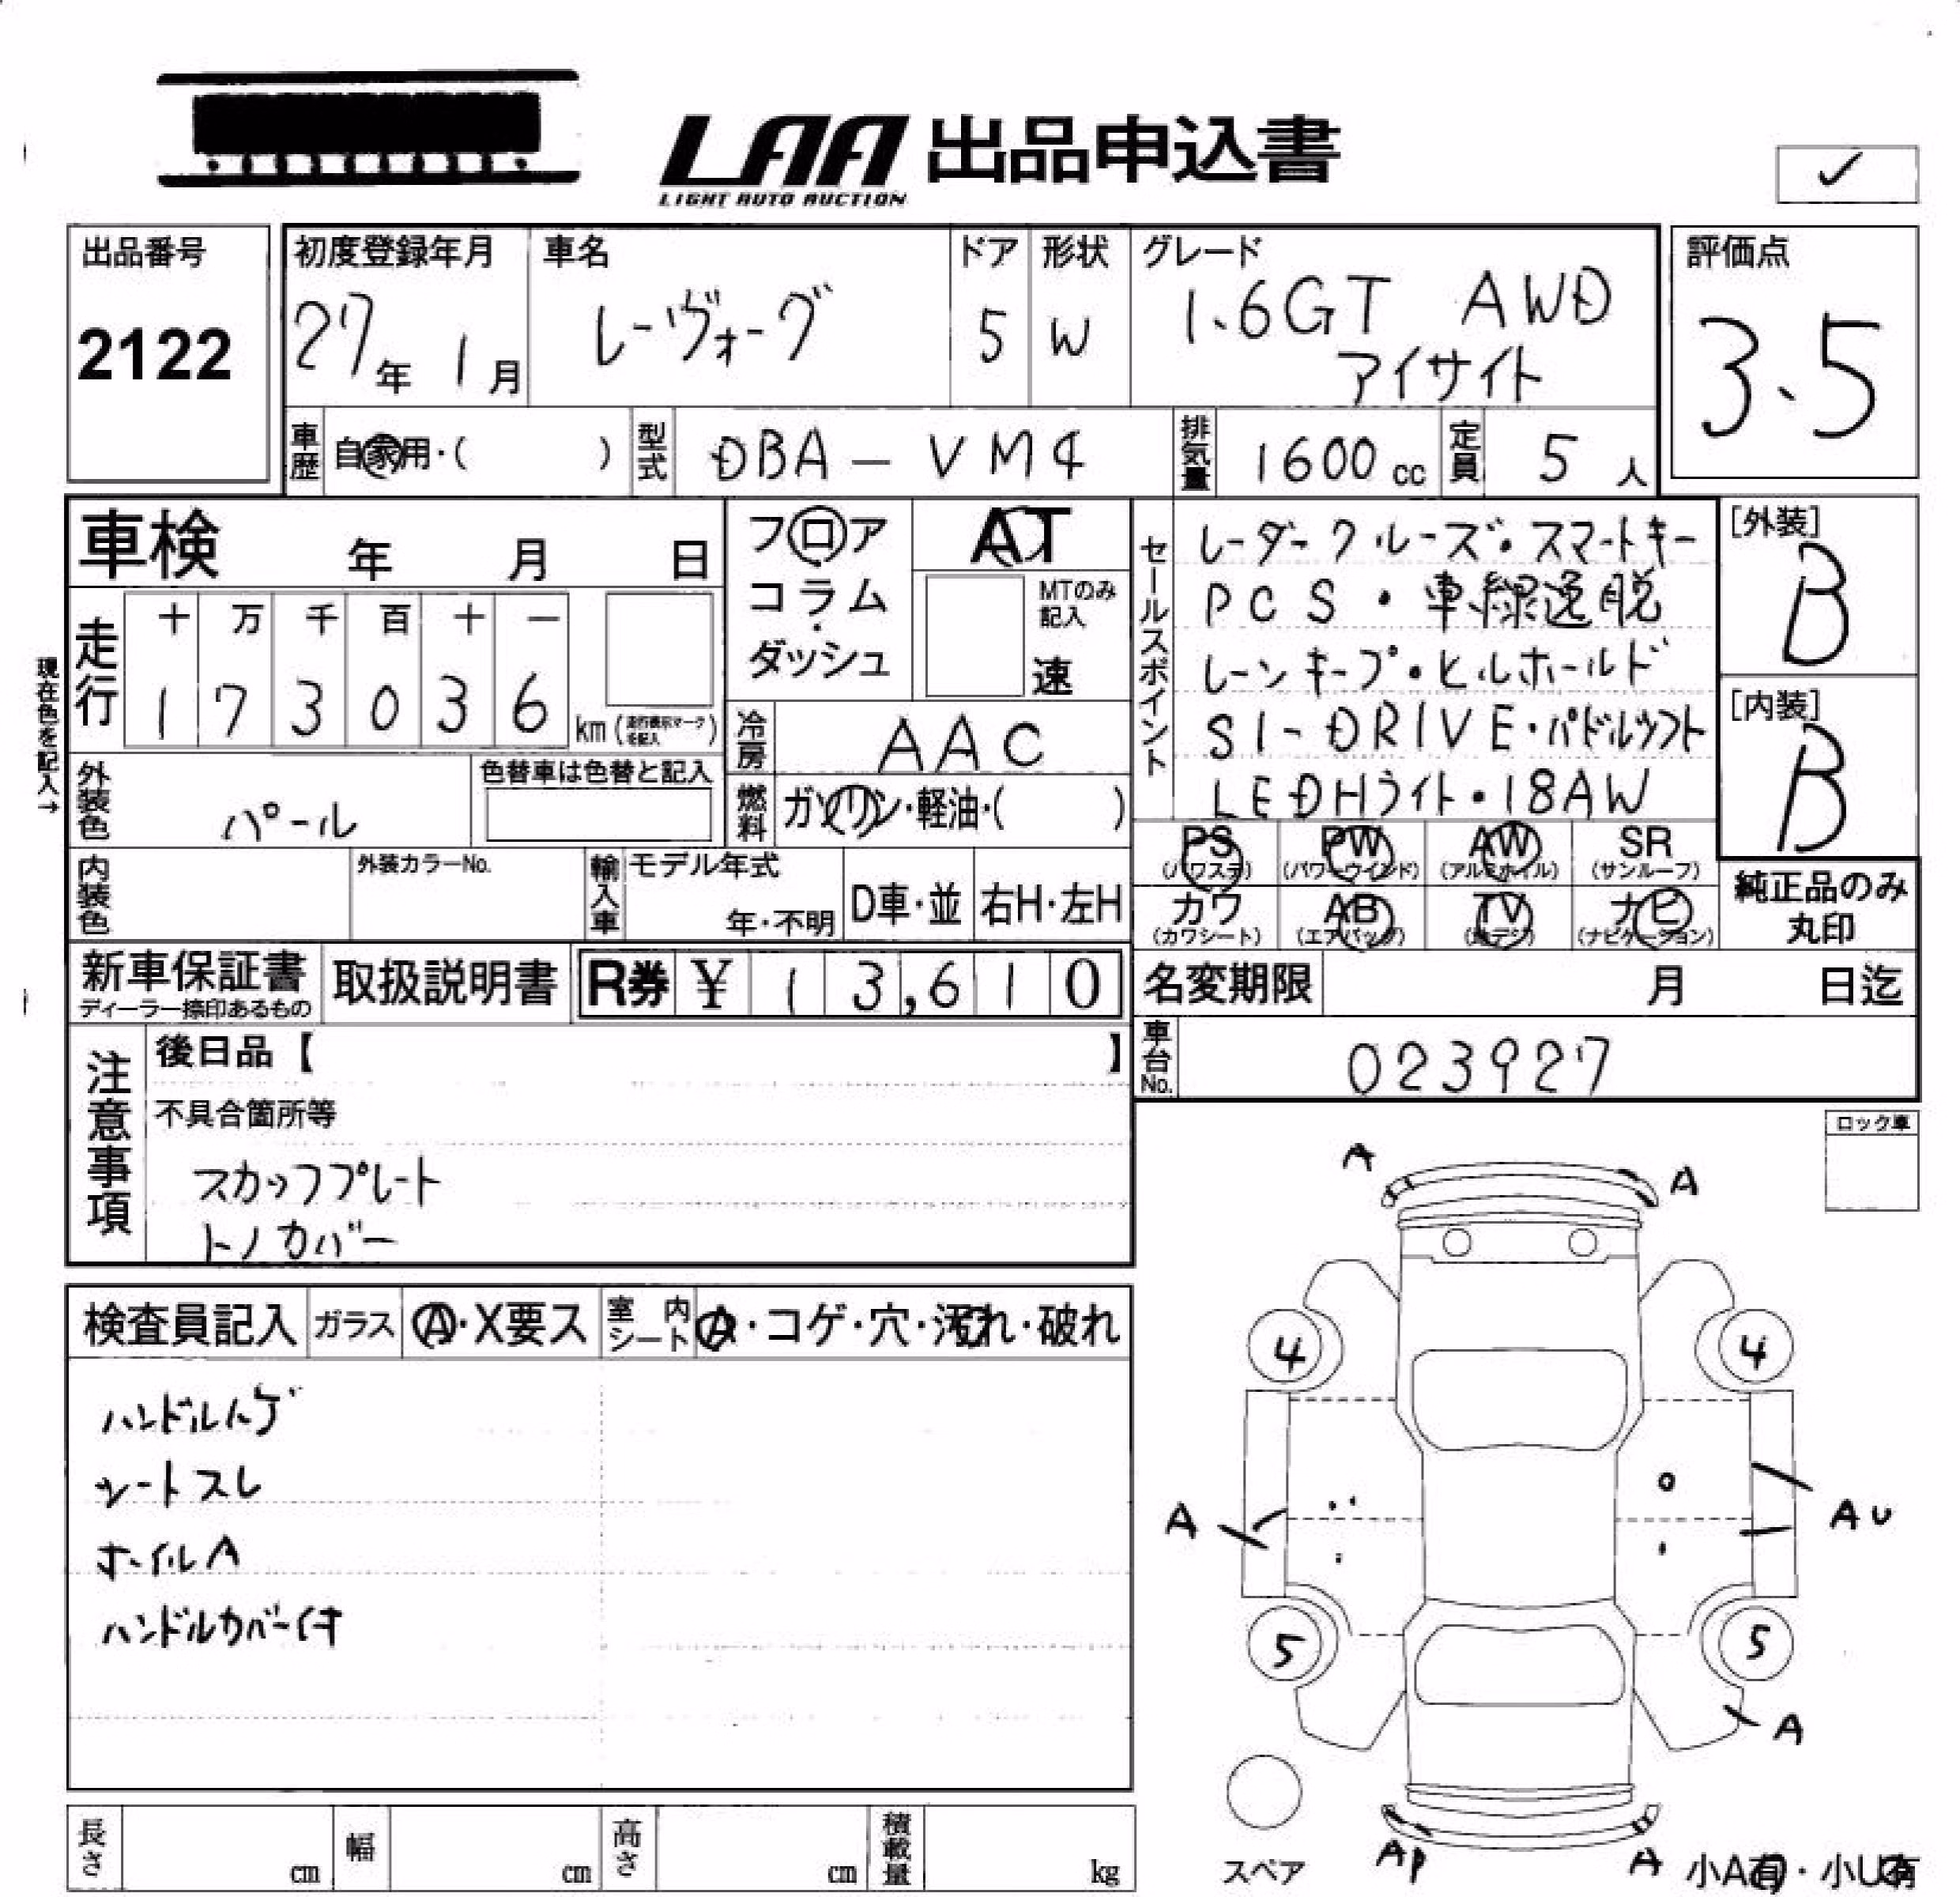 LAA 出品申込書
LIGHT AUTO AUCTION
✓
出品番号
2122
初度登録年月
27年 1月
車名
レーヴォーグ
ドア
5
形状
W
グレード
1.6GT AWD
アイサイト
評価点
3.5
車歴
自家用・( )
型式
DBA-VM4
排気量
1600cc
定員
5人
車検 年 月 日
フロア
コラム
・
ダッシュ
AT
MTのみ
記入
速
セールスポイント
レーダークルーズ・スマートキー
PCS・車線逸脱
レーンキープ・ヒルホールド
SI-DRIVE・パドルシフト
LEDHライト・18AW
[外装]
B
[内装]
B
現在色を記入→
走行
十 万 千 百 十 一
1 7 3 0 3 6
km (走行表示マークを記入)
冷房
AAC
外装色
パール
色替車は色替と記入
燃料
ガソリン・軽油・( )
PS
(パワステ)
PW
(パワーウインド)
AW
(アルミホイル)
SR
(サンルーフ)
内装色
外装カラーNo.
輸入車
モデル年式
年・不明
D車・並
右H・左H
カワ
(カワシート)
AB
(エアバッグ)
TV
(地デジ)
ナビ
(ナビゲーション)
純正品のみ
丸印
新車保証書
ディーラー捺印あるもの
取扱説明書
R券 ¥ 13,610
名変期限 月 日迄
車台No.
023927
注意事項
後日品【 】
不具合箇所等
スカッフプレート
トノカバー
ロック車
検査員記入
ガラス
A・X要ス
室内シート
A・コゲ・穴・汚れ・破れ
ハンドルハゲ
シートスレ
ホイルA
ハンドルカバー付
A
A
4
4
A
AU
5
5
A
スペア
AP
A
小A有・小U有
長さ cm
幅 cm
高さ cm
積載量 kg